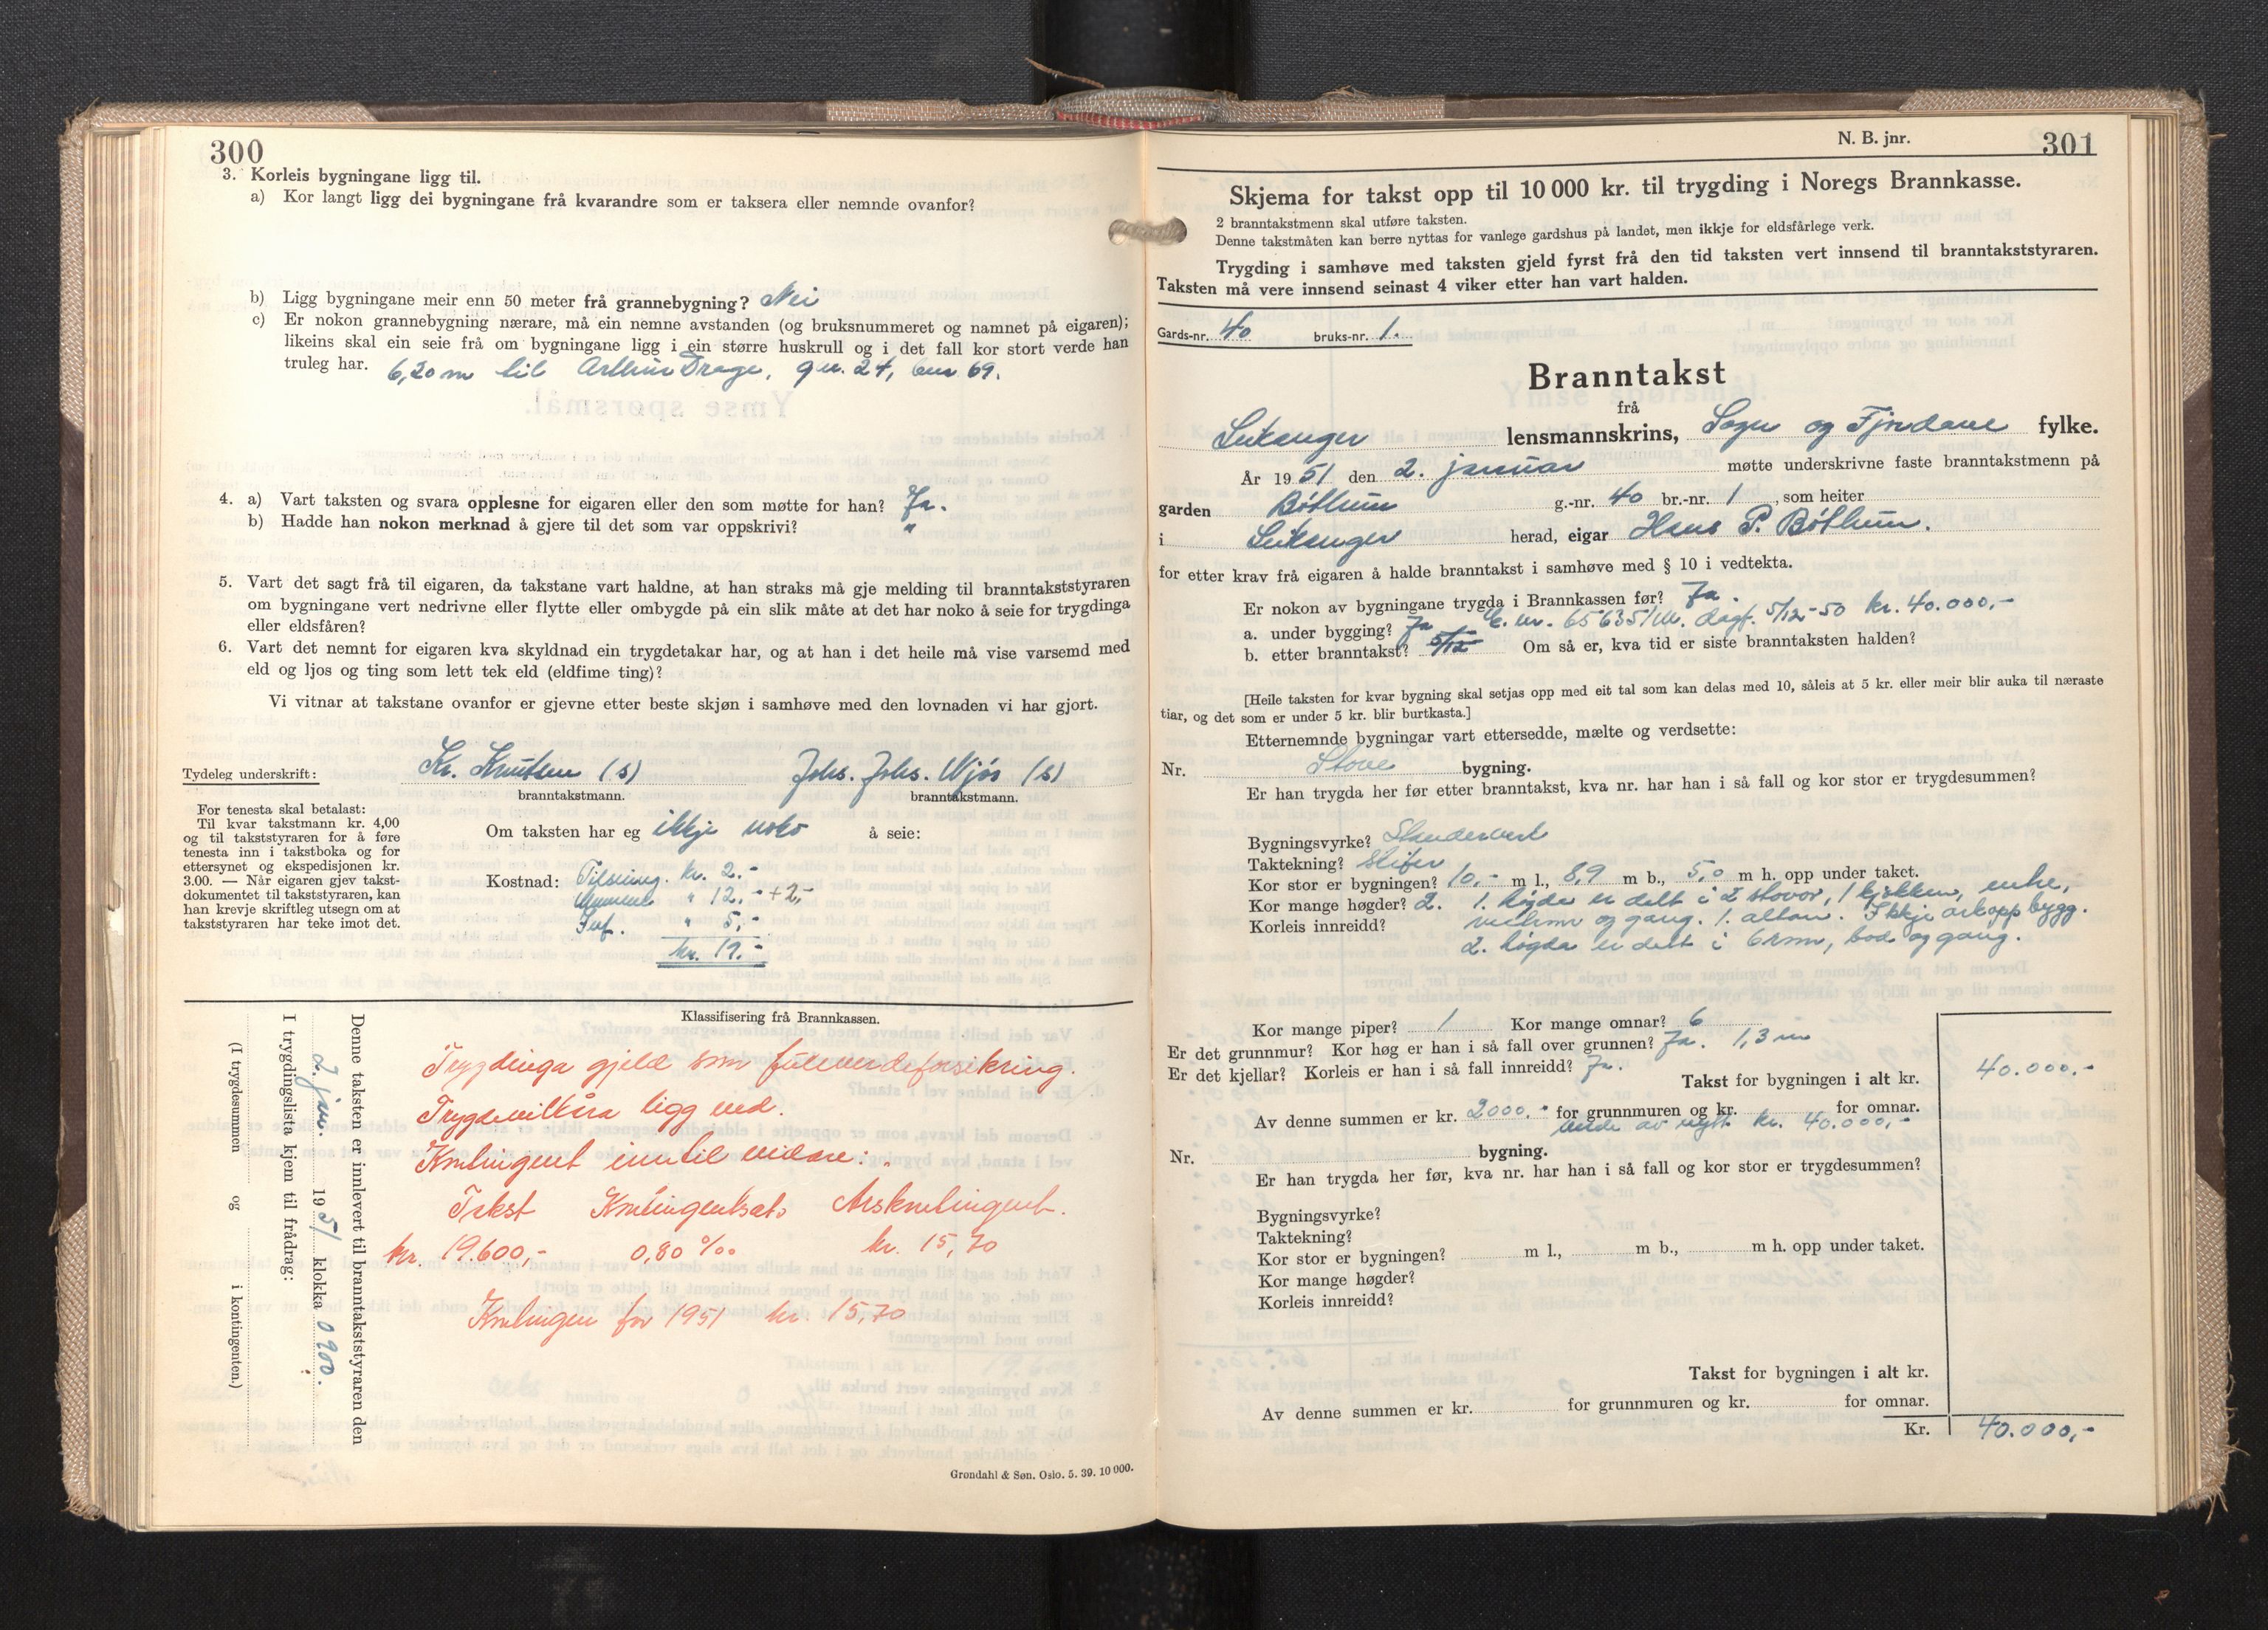 300
3. Korleis bygningane ligg til.
a) Kor langt ligg dei bygningane frå kvarandre som er taksera eller nemnde ovanfor?
b) Ligg bygningane meir enn 50 meter frå grannebygning? Nei
c) Er nokon grannebygning nærare, må ein nemne avstanden (og bruksnummeret og namnet på eigaren);
likeins skal ein seie frå om bygningane ligg i ein større huskrull og i det fall kor stort verde han
truleg har. 6,20 m til Arthur Drage, gnr. 24, bnr 69.
4. a) Vart taksten og svara opplesne for eigaren eller den som møtte for han? Ja.
b) Hadde han nokon merknad å gjere til det som var oppskrivi? "
5. Vart det sagt frå til eigaren, da takstane vart haldne, at han straks må gje melding til branntakststyraren
om bygningane vert nedrivne eller flytte eller ombygde på ein slik måte at det har noko å seie for trygdinga
eller eldsfåren?
6. Vart det nemnt for eigaren kva skyldnad ein trygdetakar har, og at han i det heile må vise varsemd med
eld og ljos og ting som lett tek eld (eldfime ting)?
Vi vitnar at takstane ovanfor er gjevne etter beste skjøn i samhøve med den lovnaden vi har gjort.
Tydeleg underskrift: Kr. Knutsen (s) Johs. Johs. Njøs (s)
branntakstmann. branntakstmann.
For tenesta skal betalast:
Til kvar takstmann kr. 4,00
og til takststyraren for å føre
tenesta inn i takstboka og for
ettersynet og ekspedisjonen kr.
3.00. — Når eigaren gjev takst-
dokumentet til takststyraren, kan
han krevje skriftleg utsegn om at
takststyraren har teke imot det.
Om taksten har eg ikkje noko å seie:
Kostnad: Tilsening. kr. 2.-
" 12.- +2,-
" 5,-
kr. 19.-
Denne taksten er innlevert til branntakststyraren den
2. jan. 1951 klokka 0900.
I trygdingslista kjem til frådrag:
(I trygdesummen og i kontingenten.)
Klassifisering frå Brannkassen.
Trygdinga gjeld som fullverdeforsikring.
Trygdevilkåra ligg ved.
Kontingent inntil vidare:
Takst Kontingentsats Årskontingent.
kr. 19.600,- 0,80 ‰ kr. 15,70
Kontingen for 1951 kr. 15,70
Grøndahl & Søn. Oslo. 5. 39. 10 000.
N. B. jnr. 301
Skjema for takst opp til 10 000 kr. til trygding i Noregs Brannkasse.
2 branntakstmenn skal utføre taksten.
Denne takstmåten kan berre nyttas for vanlege gardshus på landet, men ikkje for eldsfårlege verk.
Trygding i samhøve med taksten gjeld fyrst frå den tid taksten vert innsend til branntakststyraren.
Taksten må vere innsend seinast 4 viker etter han vart halden.
Gards-nr. 40 bruks-nr. 1.
Branntakst
frå
Leikanger lensmannskrins, Sogn og Fjordane fylke.
År 1951 den 2. januar møtte underskrivne faste branntakstmenn på
garden Bøthun g.-nr. 40 br.-nr. 1, som heiter
i Leikanger herad, eigar Hans P. Bøthun.
for etter krav frå eigaren å halde branntakst i samhøve med § 10 i vedtekta.
Er nokon av bygningane trygda i Brannkassen før? Ja.
a. under bygging? Ja nr. 656351/ dagf. 5/12-50 kr. 40.000,-
b. etter branntakst? 5/12 Om så er, kva tid er siste branntaksten halden?
[Heile taksten for kvar bygning skal setjas opp med eit tal som kan delas med 10, såleis at 5 kr. eller meir blir auka til næraste
tiar, og det som er under 5 kr. blir burtkasta.]
Etternemnde bygningar vart ettersedde, mælte og verdsette:
Nr. Stove bygning.
Er han trygda her før etter branntakst, kva nr. har han i så fall og kor stor er trygdesummen?
Bygningsvyrke? Standerverk
Taktekning? Skifer
Kor stor er bygningen? 10,- m l., 8,9 m b., 5,0 m h. opp under taket.
Kor mange høgder? 2. 1. høgda er delt i 2 stovor, 1 kjøkken,
Korleis innreidd? og gang. 1. altan. Ikkje arkoppbygg.
2. høgda er delt i 6 rom, bod og gang.
Kor mange piper? 1 Kor mange omnar? 6
Er det grunnmur? Kor høg er han i så fall over grunnen? Ja. 1,3 m
Er det kjellar? Korleis er han i så fall innreidd? Ja.
Takst for bygningen i alt kr. 40.000,-
Av denne summen er kr. 2000.- for grunnmuren og kr. for omnar.
verde av nytt kr. 40.000,-
Nr. bygning.
Er han trygda her før, kva nr. har han i så fall og kor stor er trygdesummen?
Bygningsvyrke?
Taktekning?
Kor stor er bygningen? m l., m b., m h. opp under taket.
Kor mange høgder?
Korleis innreidd?
Takst for bygningen i alt kr.
Av denne summen er kr. for grunnmuren og kr. for omnar.
Kr. 40.000,-